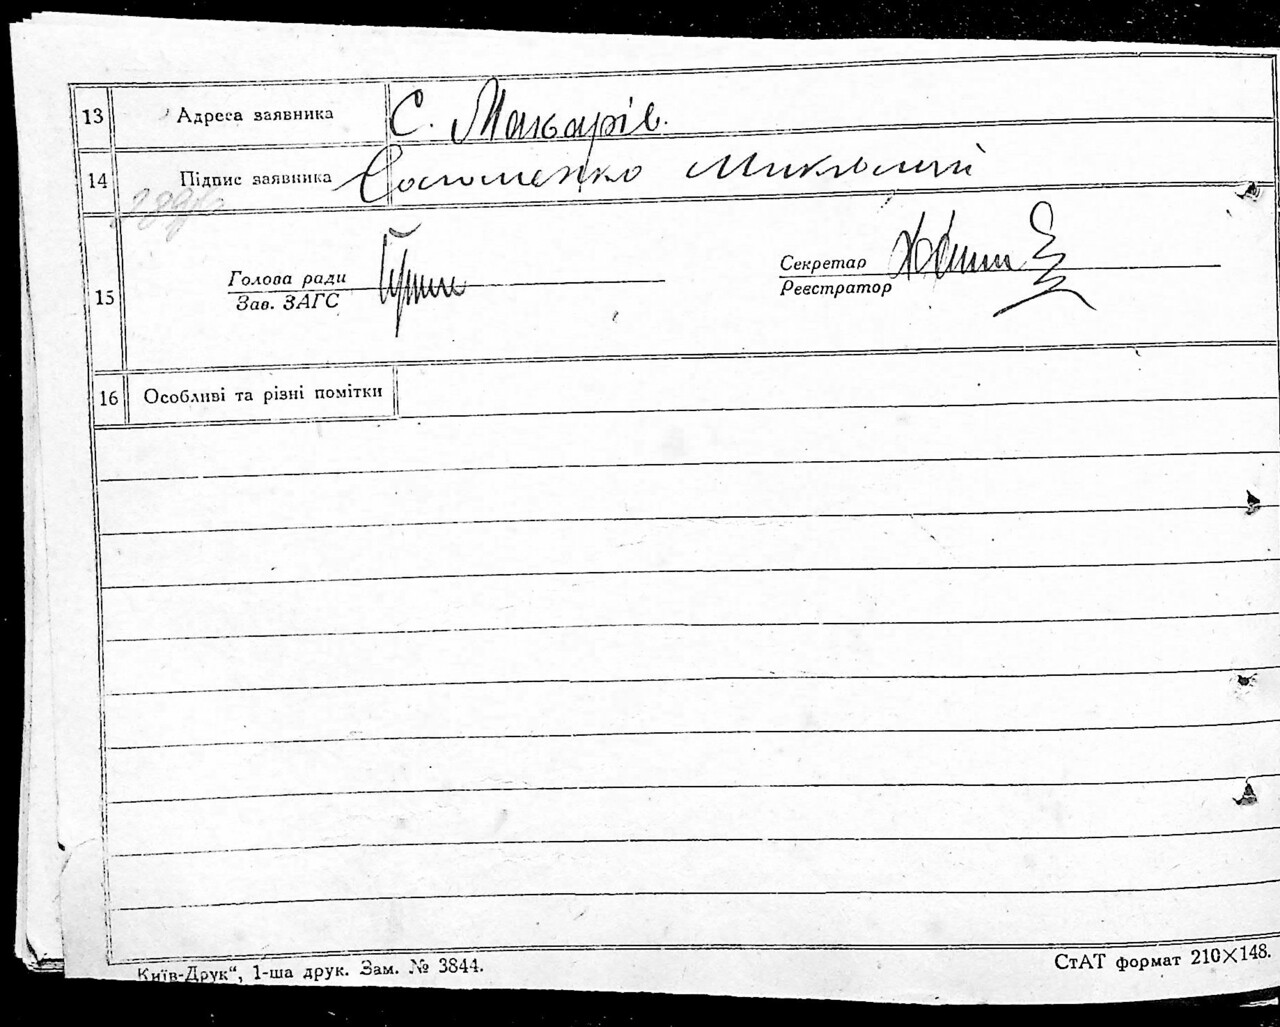 13 Адреса заявника С. Макарів.
14 Підпис заявника Миколай
15
Голова ради
Зав. ЗАГС
Секретар
Реєстратор
16 Особливі та різні помітки
Київ-Друк“, 1-ша друк. Зам. № 3844.
СтАТ формат 210×148.